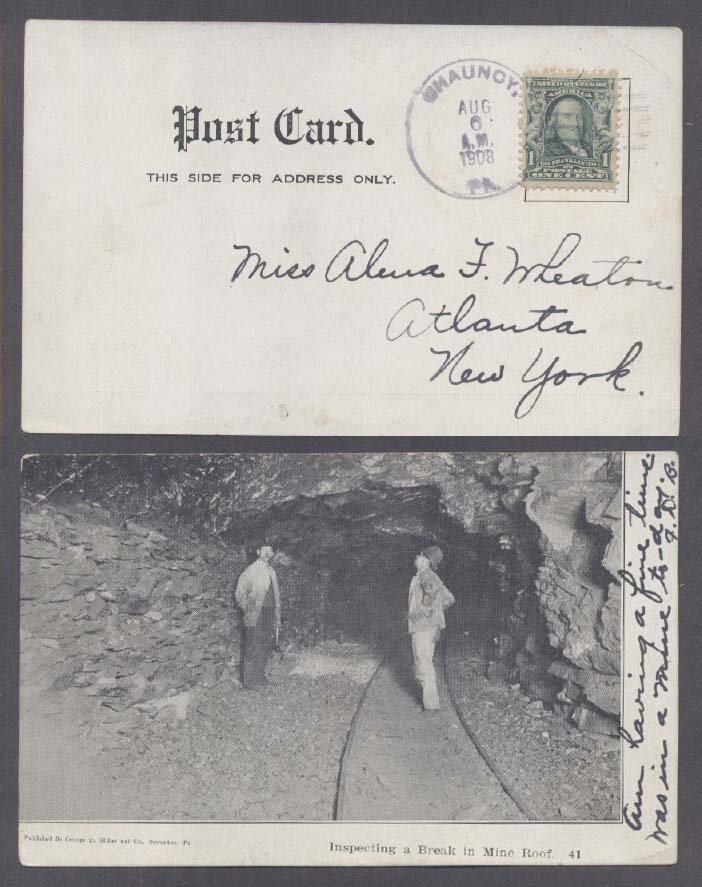 Post Card.
THIS SIDE FOR ADDRESS ONLY.
CHAUNCY,
AUG
6
A.M.
1908
PA.
UNITED STATES OF
AMERICA
1 1
POSTAGE
ONE CENT
Miss Alena F. Wheaton
Atlanta
New York.
Am having a fine time
was in a mine to-day.
Published By George D. Miller and Co. Pa.
Inspecting a Break in Mine Roof. 41